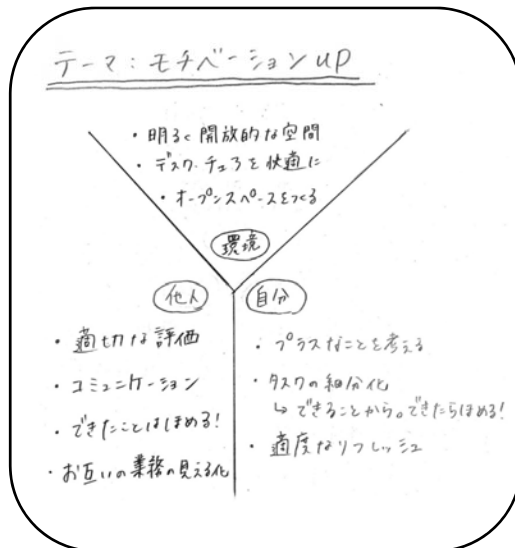 テーマ：モチベーションup
・明るく開放的な空間
・デスク・チェアを快適に
・オープンスペースをつくる
環境
他人
自分
・適切な評価
・コミュニケーション
・できたことはほめる！
・お互いの業務の見える化
・プラスなことを考える
・タスクの細分化
↳できることから。できたらほめる！
・適度なリフレッシュ